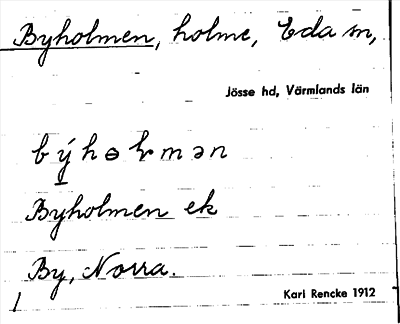 Byholmen, holme, Eda sn,
Jösse hd, Värmlands län
býhɵɽmən
Byholmen ek
By, Norra.
Karl Rencke 1912
1